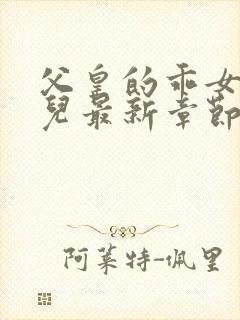 父皇的乖女
兒最新章節
阿萊特-佩里